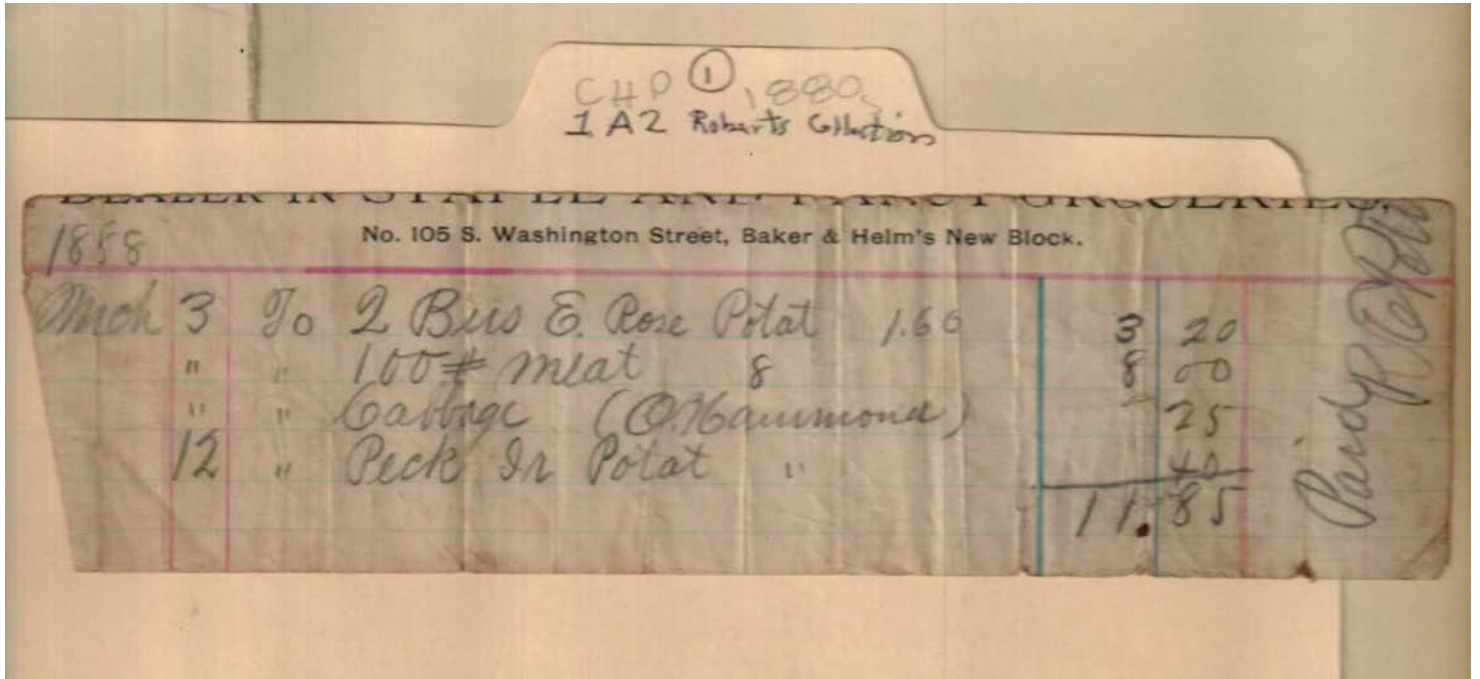 CHP ① 1880s
1A2 Roberts Collection
DEALER IN STAPLE AND FANCY GROCERIES.
No. 105 S. Washington Street, Baker & Helm's New Block.
1888
Mch 3 To 2 Bus E. Rose Potat 1.60 3 20
" " 100# meat 8 8 00
" " Cabbage (O. Hammond) 25
12 " Peck Ir Potat " 40
11.85
Paid